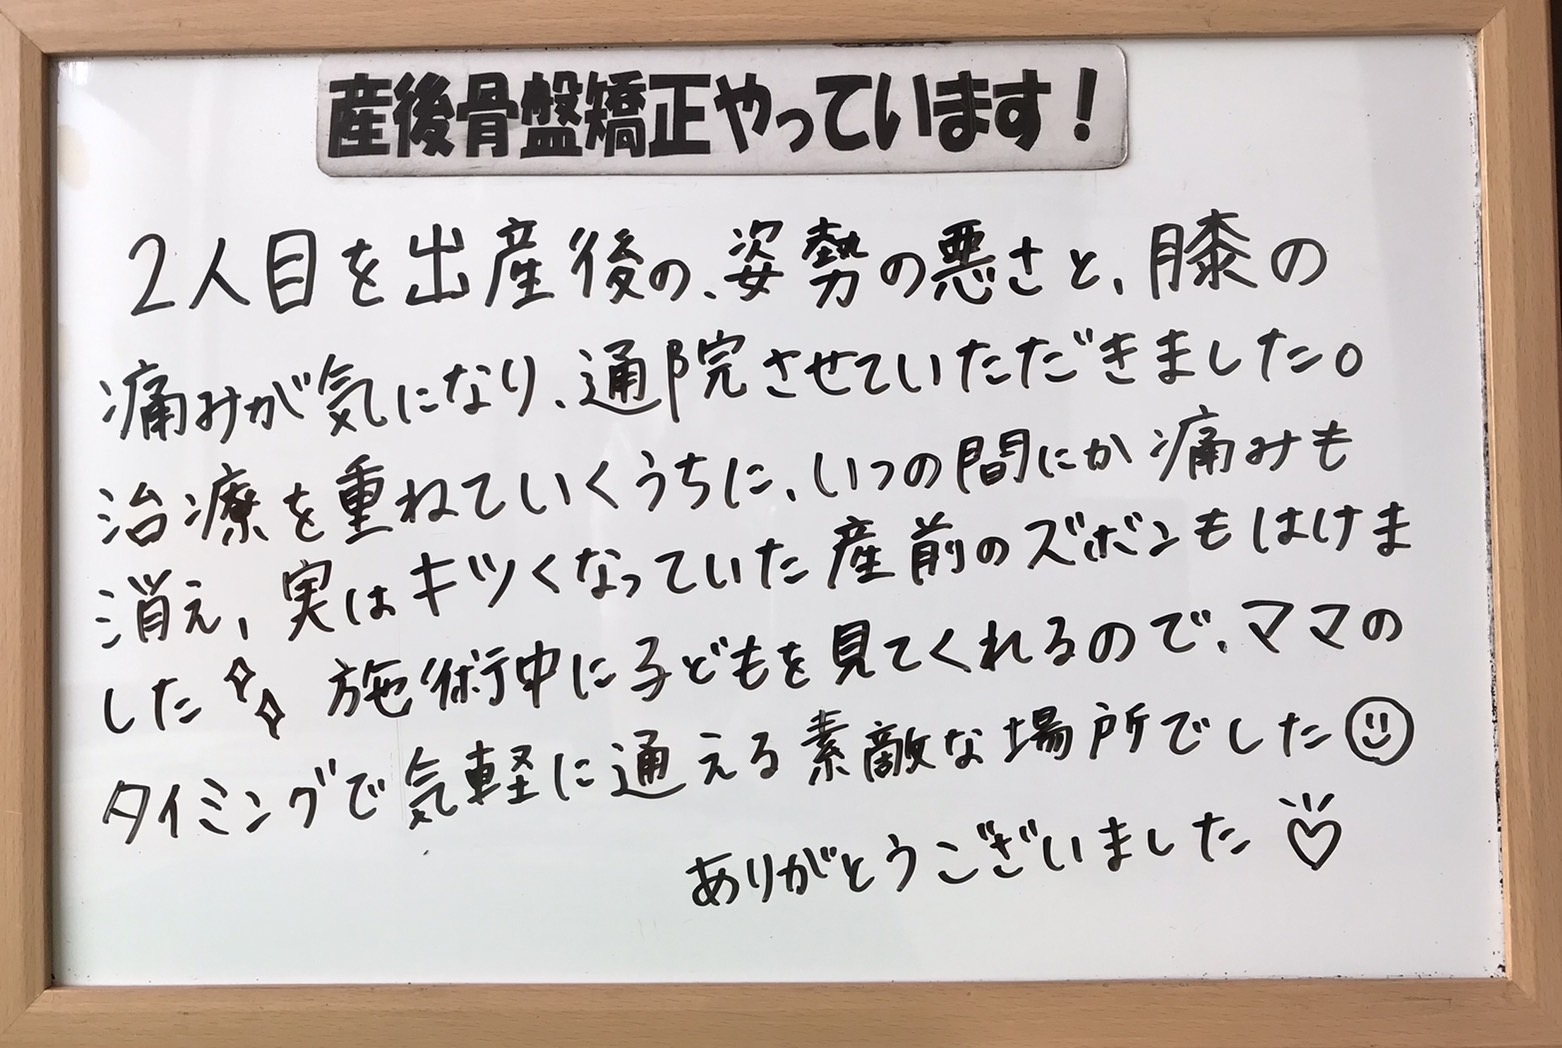 産後骨盤矯正やっています！
2人目を出産後の、姿勢の悪さと、膝の
痛みが気になり、通院させていただきました。
治療を重ねていくうちに、いつの間にか痛みも
消え、実はキツくなっていた産前のズボンもはけま
した 施術中に子どもを見てくれるので、ママの
タイミングで気軽に通える素敵な場所でした
ありがとうございました